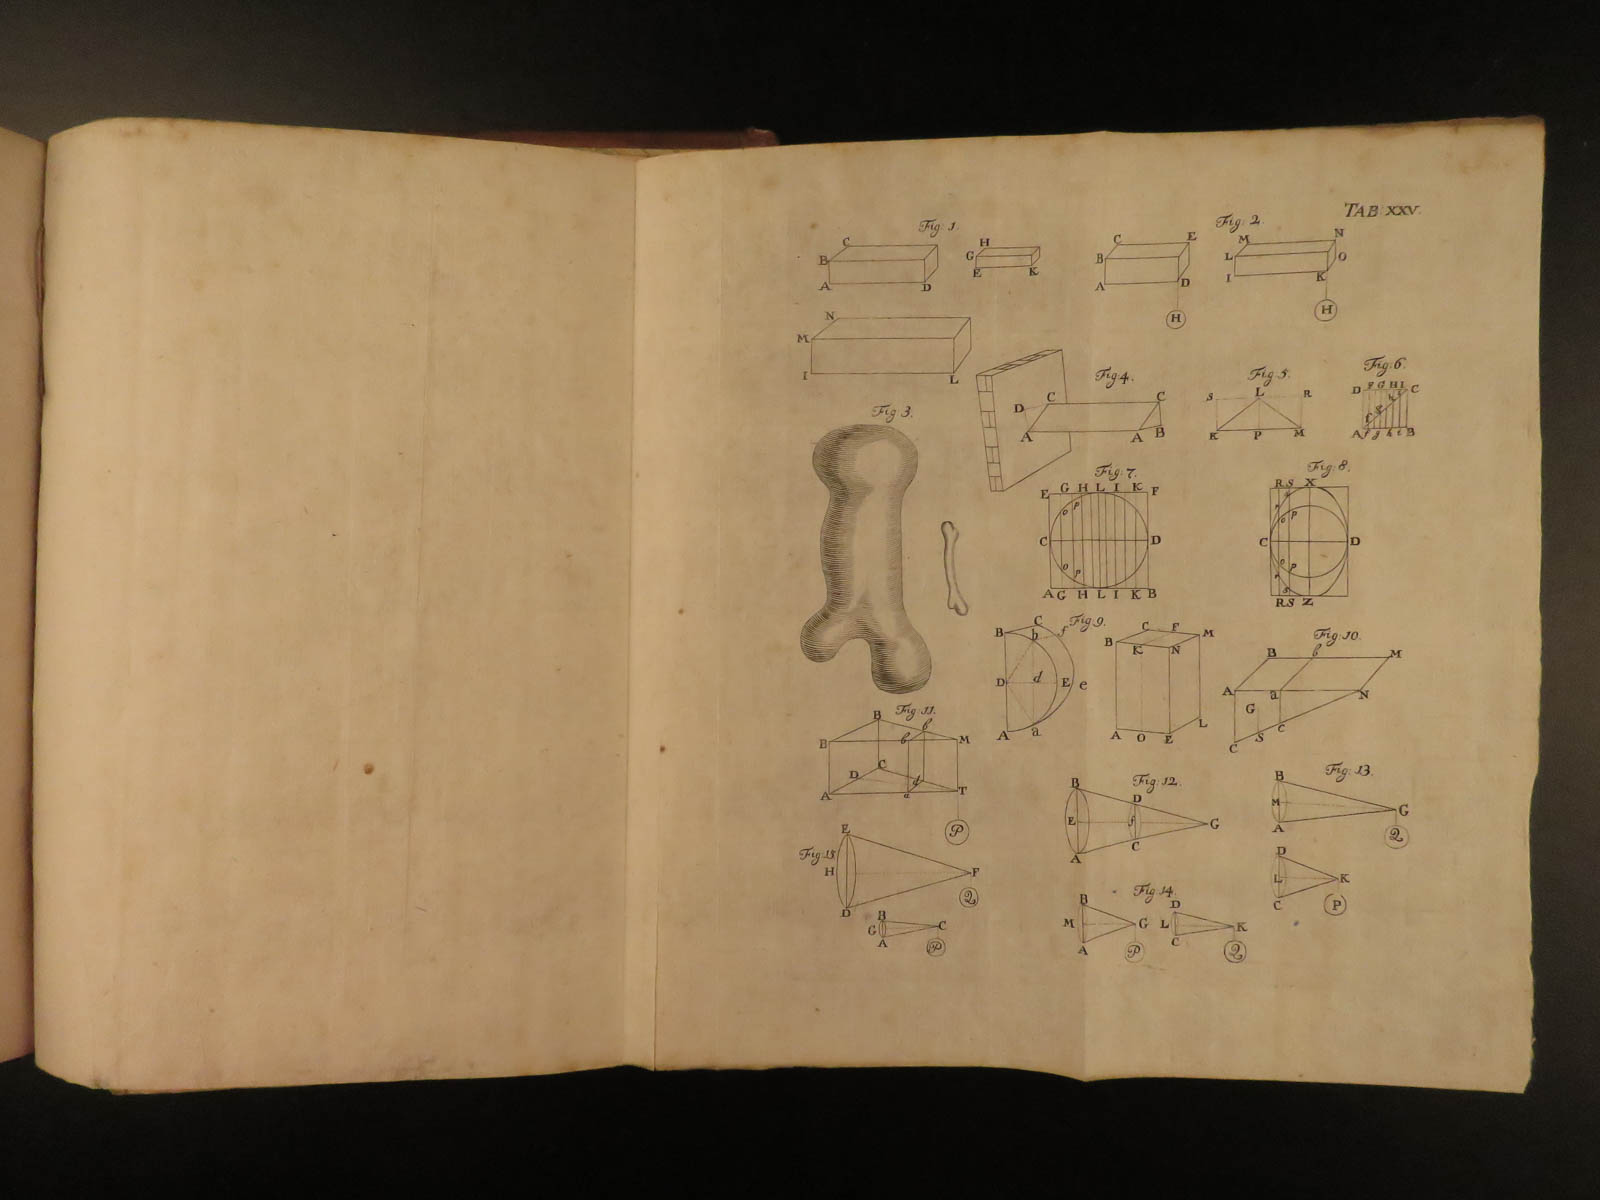 TAB XXV.
Fig: 1.
C
B
A D
H
G
E K
Fig: 2.
C E
B
A D
H
M N
L O
I K
H
N
M
I L
Fig 3.
Fig: 4.
D C C
A A B
Fig: 5.
S L R
K P M
Fig: 6.
D F G H I C
A f g h i B
Fig: 7.
E G H L I K F
O P
C D
O P
A G H L I K B
Fig: 8.
R S X
O P
C D
O P
R S Z
Fig: 9.
B C f
b
D d E e
A a
C F M
B K N
A O E L
Fig: 10.
B b M
A a N
G
C S c
Fig: 11.
B b
B b M
D C d
A a T
P
Fig: 12.
B D
E f G
A C
Fig: 13.
B
M G
A
Q
D
L K
C
P
Fig: 15
E
H F
D
Q
B
G C
A
P
Fig: 14.
B
M G
A
P
D
L K
C
Q